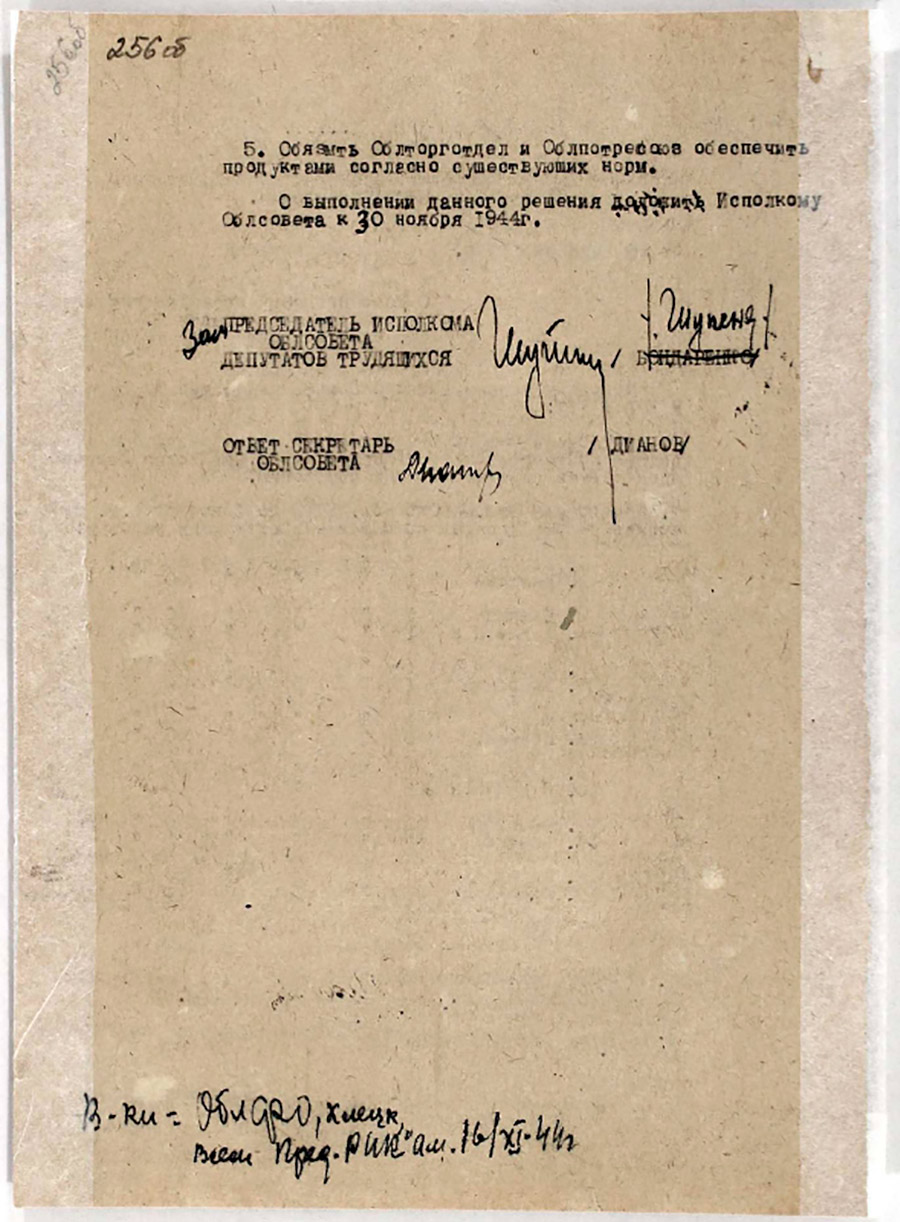 256об
256об
5. Обязать Облторготдел и Облпотребсоюз обеспечить
продуктами согласно существующих норм.
О выполнении данного решения доложить Исполкому
Облсовета к 30 ноября 1944г.
Зам ПРЕДСЕДАТЕЛЬ ИСПОЛКОМА /Шупеня/
ОБЛСОВЕТА
ДЕПУТАТОВ ТРУДЯЩИХСЯ / БОНДАРЕНКО/
ОТВЕТ СЕКРЕТАРЬ / ДИАНОВ/
ОБЛСОВЕТА
В-ки = ОблФО, Клецк,
всем Пред. РИК"ам. 16/XI-44г